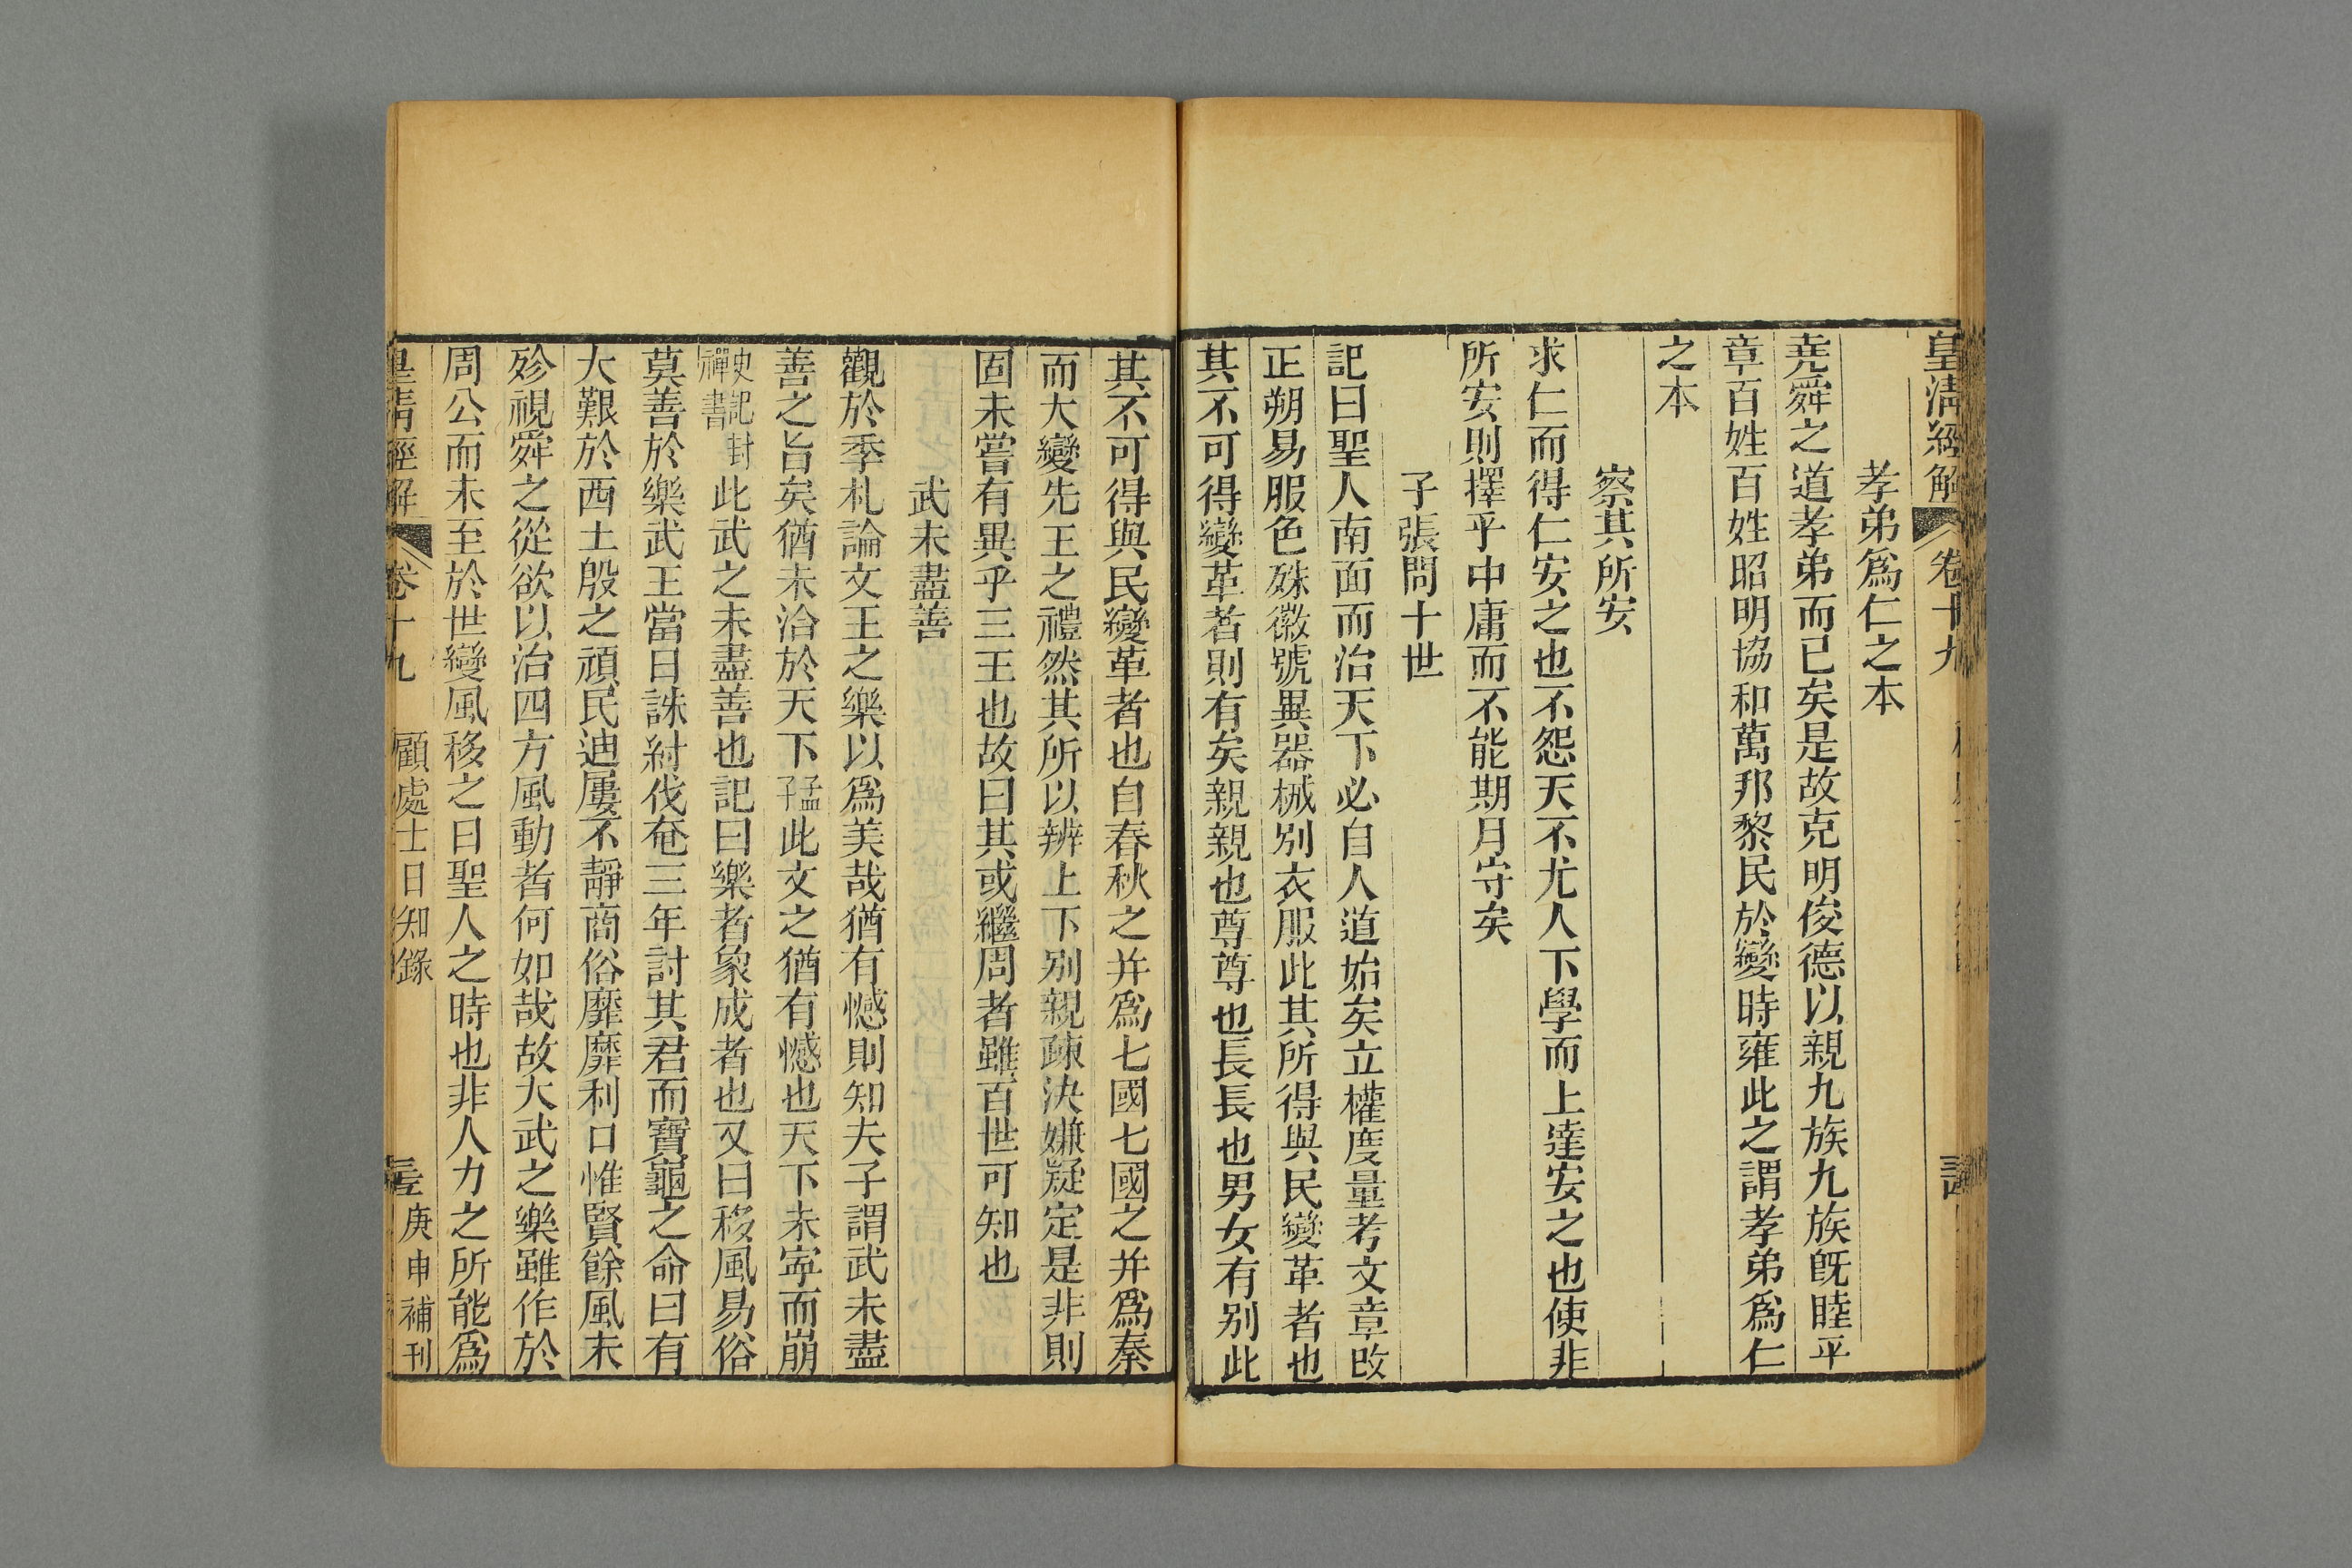 皇清經解 卷十九
孝弟爲仁之本
堯舜之道孝弟而已矣是故克明俊德以親九族九族旣睦平
章百姓百姓昭明協和萬邦黎民於變時雍此之謂孝弟爲仁
之本
察其所安
求仁而得仁安之也不怨天不尤人下學而上達安之也使非
所安則擇乎中庸而不能期月守矣
子張問十世
記曰聖人南面而治天下必自人道始矣立權度量考文章改
正朔易服色殊徽號異器械別衣服此其所得與民變革者也
其不可得變革者則有矣親親也尊尊也長長也男女有別此
其不可得與民變革者也自春秋之并爲七國七國之并爲秦
而大變先王之禮然其所以辨上下別親疎決嫌疑定是非則
固未嘗有異乎三王也故曰其或繼周者雖百世可知也
武未盡善
觀於季札論文王之樂以爲美哉猶有憾則知夫子謂武未盡
善之旨矣猶未洽於天下孟子此文之猶有憾也天下未寧而崩
史記封禪書此武之未盡善也記曰樂者象成者也又曰移風易俗
莫善於樂武王當日誅紂伐奄三年討其君而寶龜之命曰有
大艱於西土殷之頑民迪屢不靜商俗靡靡利口惟賢餘風未
殄視舜之從欲以治四方風動者何如哉故大武之樂雖作於
周公而未至於世變風移之日聖人之時也非人力之所能爲
皇清經解 卷十九 顧處士日知錄 庚申補刊